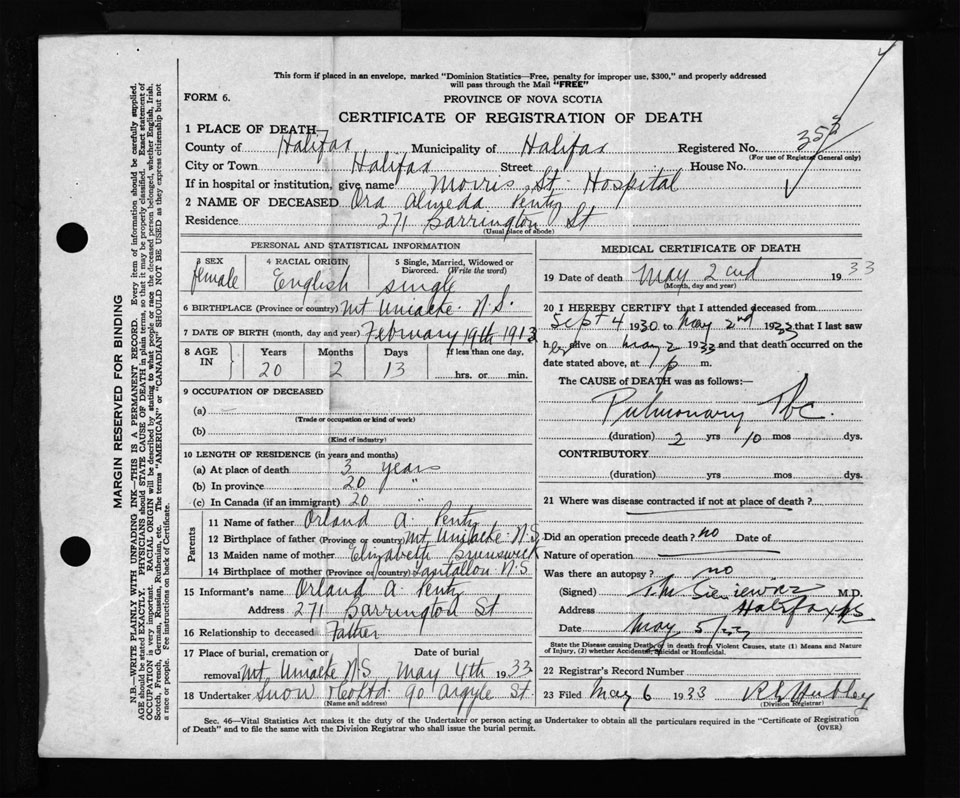 4
This form if placed in an envelope, marked "Dominion Statistics—Free, penalty for improper use, $300," and properly addressed
will pass through the Mail "FREE"
FORM 6.
PROVINCE OF NOVA SCOTIA
CERTIFICATE OF REGISTRATION OF DEATH
1 PLACE OF DEATH—
County of Halifax Municipality of Halifax Registered No.
(For use of Registrar General only)
City or Town Halifax Street House No.
If in hospital or institution, give name Morris St. Hospital
2 NAME OF DECEASED Ora Almeda Penty
Residence 271 Barrington St
(Usual place of abode)
PERSONAL AND STATISTICAL INFORMATION
3 SEX 4 RACIAL ORIGIN 5 Single, Married, Widowed or
Divorced. (Write the word)
female English single
6 BIRTHPLACE (Province or country) Mt Uniacke N.S.
7 DATE OF BIRTH (month, day and year) February 19th 1913
8 AGE IN Years Months Days If less than one day,
20 2 13 hrs. or min.
9 OCCUPATION OF DECEASED
(a)
(Trade or occupation or kind of work)
(b)
(Kind of industry)
10 LENGTH OF RESIDENCE (in years and months)
(a) At place of death 3 years
(b) In province 20 "
(c) In Canada (if an immigrant) 20 "
Parents
11 Name of father Orland A. Penty
12 Birthplace of father (Province or country) Mt Uniacke N.S.
13 Maiden name of mother Elizabeth Brunswick
14 Birthplace of mother (Province or country) N.S
15 Informant's name Orland A. Penty
Address 271 Barrington St
16 Relationship to deceased Father
17 Place of burial, cremation or Date of burial
removal Mt Uniacke N.S May 4th 1933
18 Undertaker Snow & Co Ltd 90 Argyle St.
(Name and address)
MEDICAL CERTIFICATE OF DEATH
19 Date of death May 2nd 1933
(Month, day and year)
20 I HEREBY CERTIFY that I attended deceased from
Sept 4 1930 to May 2nd 1933 that I last saw
her alive on May 2 1933 and that death occurred on the
date stated above, at 1 p m.
The CAUSE of DEATH was as follows:—
Pulmonary Tbc.
(duration) 2 yrs 10 mos dys.
CONTRIBUTORY
(duration) yrs. mos. dys.
21 Where was disease contracted if not at place of death?
Did an operation precede death? no Date of
Nature of operation
Was there an autopsy? no
(Signed) M.D.
Address Halifax NS
Date May 5/33
State the Disease causing Death, or in death from Violent Causes, state (1) Means and Nature
of Injury, (2) whether Accidental, Suicidal or Homicidal.
22 Registrar's Record Number
23 Filed May 6 1933
(Division Registrar)
Sec. 46—Vital Statistics Act makes it the duty of the Undertaker or person acting as Undertaker to obtain all the particulars required in the "Certificate of Registration
of Death" and to file the same with the Division Registrar who shall issue the burial permit.
(OVER)
MARGIN RESERVED FOR BINDING
N.B.—WRITE PLAINLY WITH UNFADING INK—THIS IS A PERMANENT RECORD. Every item of information should be carefully supplied.
AGE should be stated EXACTLY. PHYSICIANS should STATE CAUSE OF DEATH in plain terms, so that it may be properly classified. Exact statement of
OCCUPATION is very important. RACIAL ORIGIN will be described by stating to what people or race the deceased person belonged, whether English, Irish,
Scotch, French, German, Russian, Ruthenian, etc. The terms "AMERICAN" or "CANADIAN" SHOULD NOT BE USED as they express citizenship but not
a race or people. Fee instructions on back of Certificate.